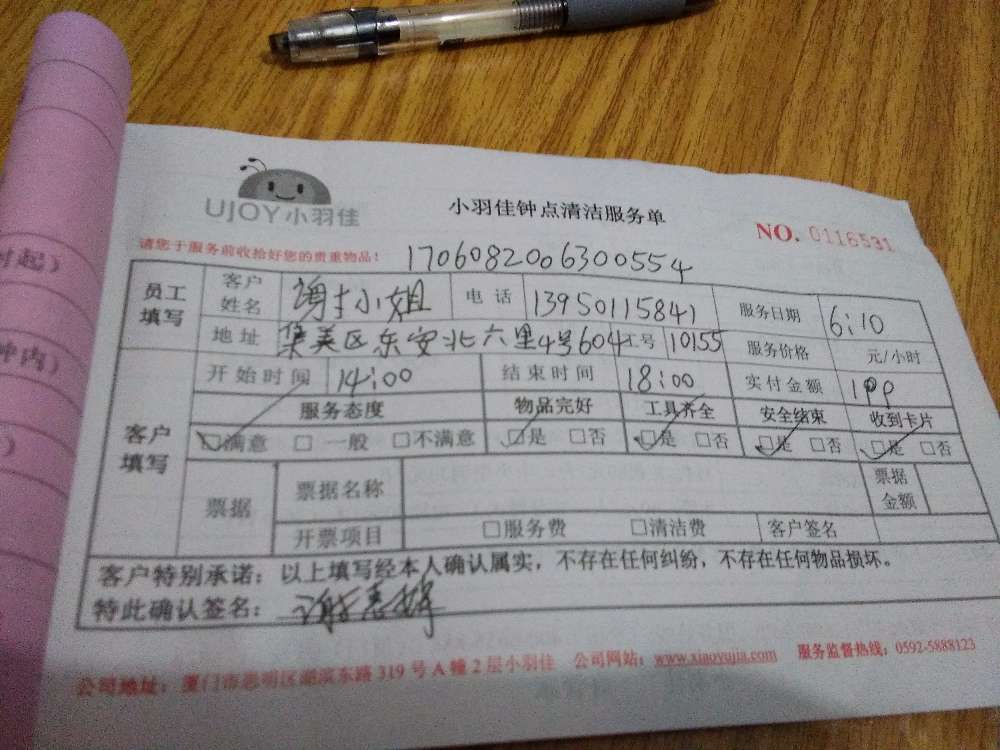 时起）
钟内）
）
UJOY小羽佳
小羽佳钟点清洁服务单
NO. 0116531
请您于服务前收拾好您的贵重物品！ 1706082006300554
员工填写 客户姓名 谢小姐 电话 13950115841 服务日期 6:10
地址 集美区东安北六里4号604 工号 10155 服务价格 元/小时
开始时间 14:00 结束时间 18:00 实付金额
客户填写 服务态度 物品完好 工具齐全 安全结束 收到卡片
☑满意 □一般 □不满意 ☑是 □否 ☑是 □否 ☑是 □否 ☑是 □否
票据 票据名称 票据金额
开票项目 □服务费 □清洁费 客户签名
客户特别承诺：以上填写经本人确认属实，不存在任何纠纷，不存在任何物品损坏。
特此确认签名：
公司地址：厦门市思明区湖滨东路319号A幢2层小羽佳 公司网站：www.xiaoyujia.com 服务监督热线：0592-5888123